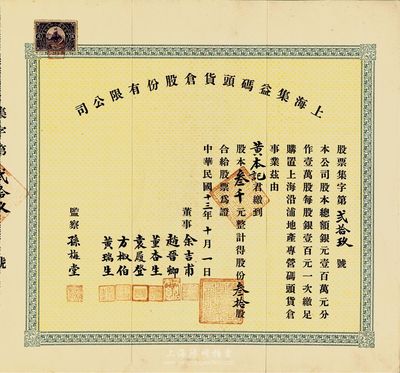 上海集益碼頭貨倉股份有限公司
股票集字第貳拾玖號
本公司股本總額銀元壹百萬元分
作壹萬股每股銀壹百元一次繳足
購置上海沿浦地產專營碼頭貨倉
事業茲由
黃本記君繳到
股本叁千元整計得股份叁拾股
合給股票爲證
中華民國十三年十月一日
董事
余吉甫
趙晋卿
董杏生
袁履登
方椒伯
黃瑞生
監察 孫梅堂
集字第貳拾玖號